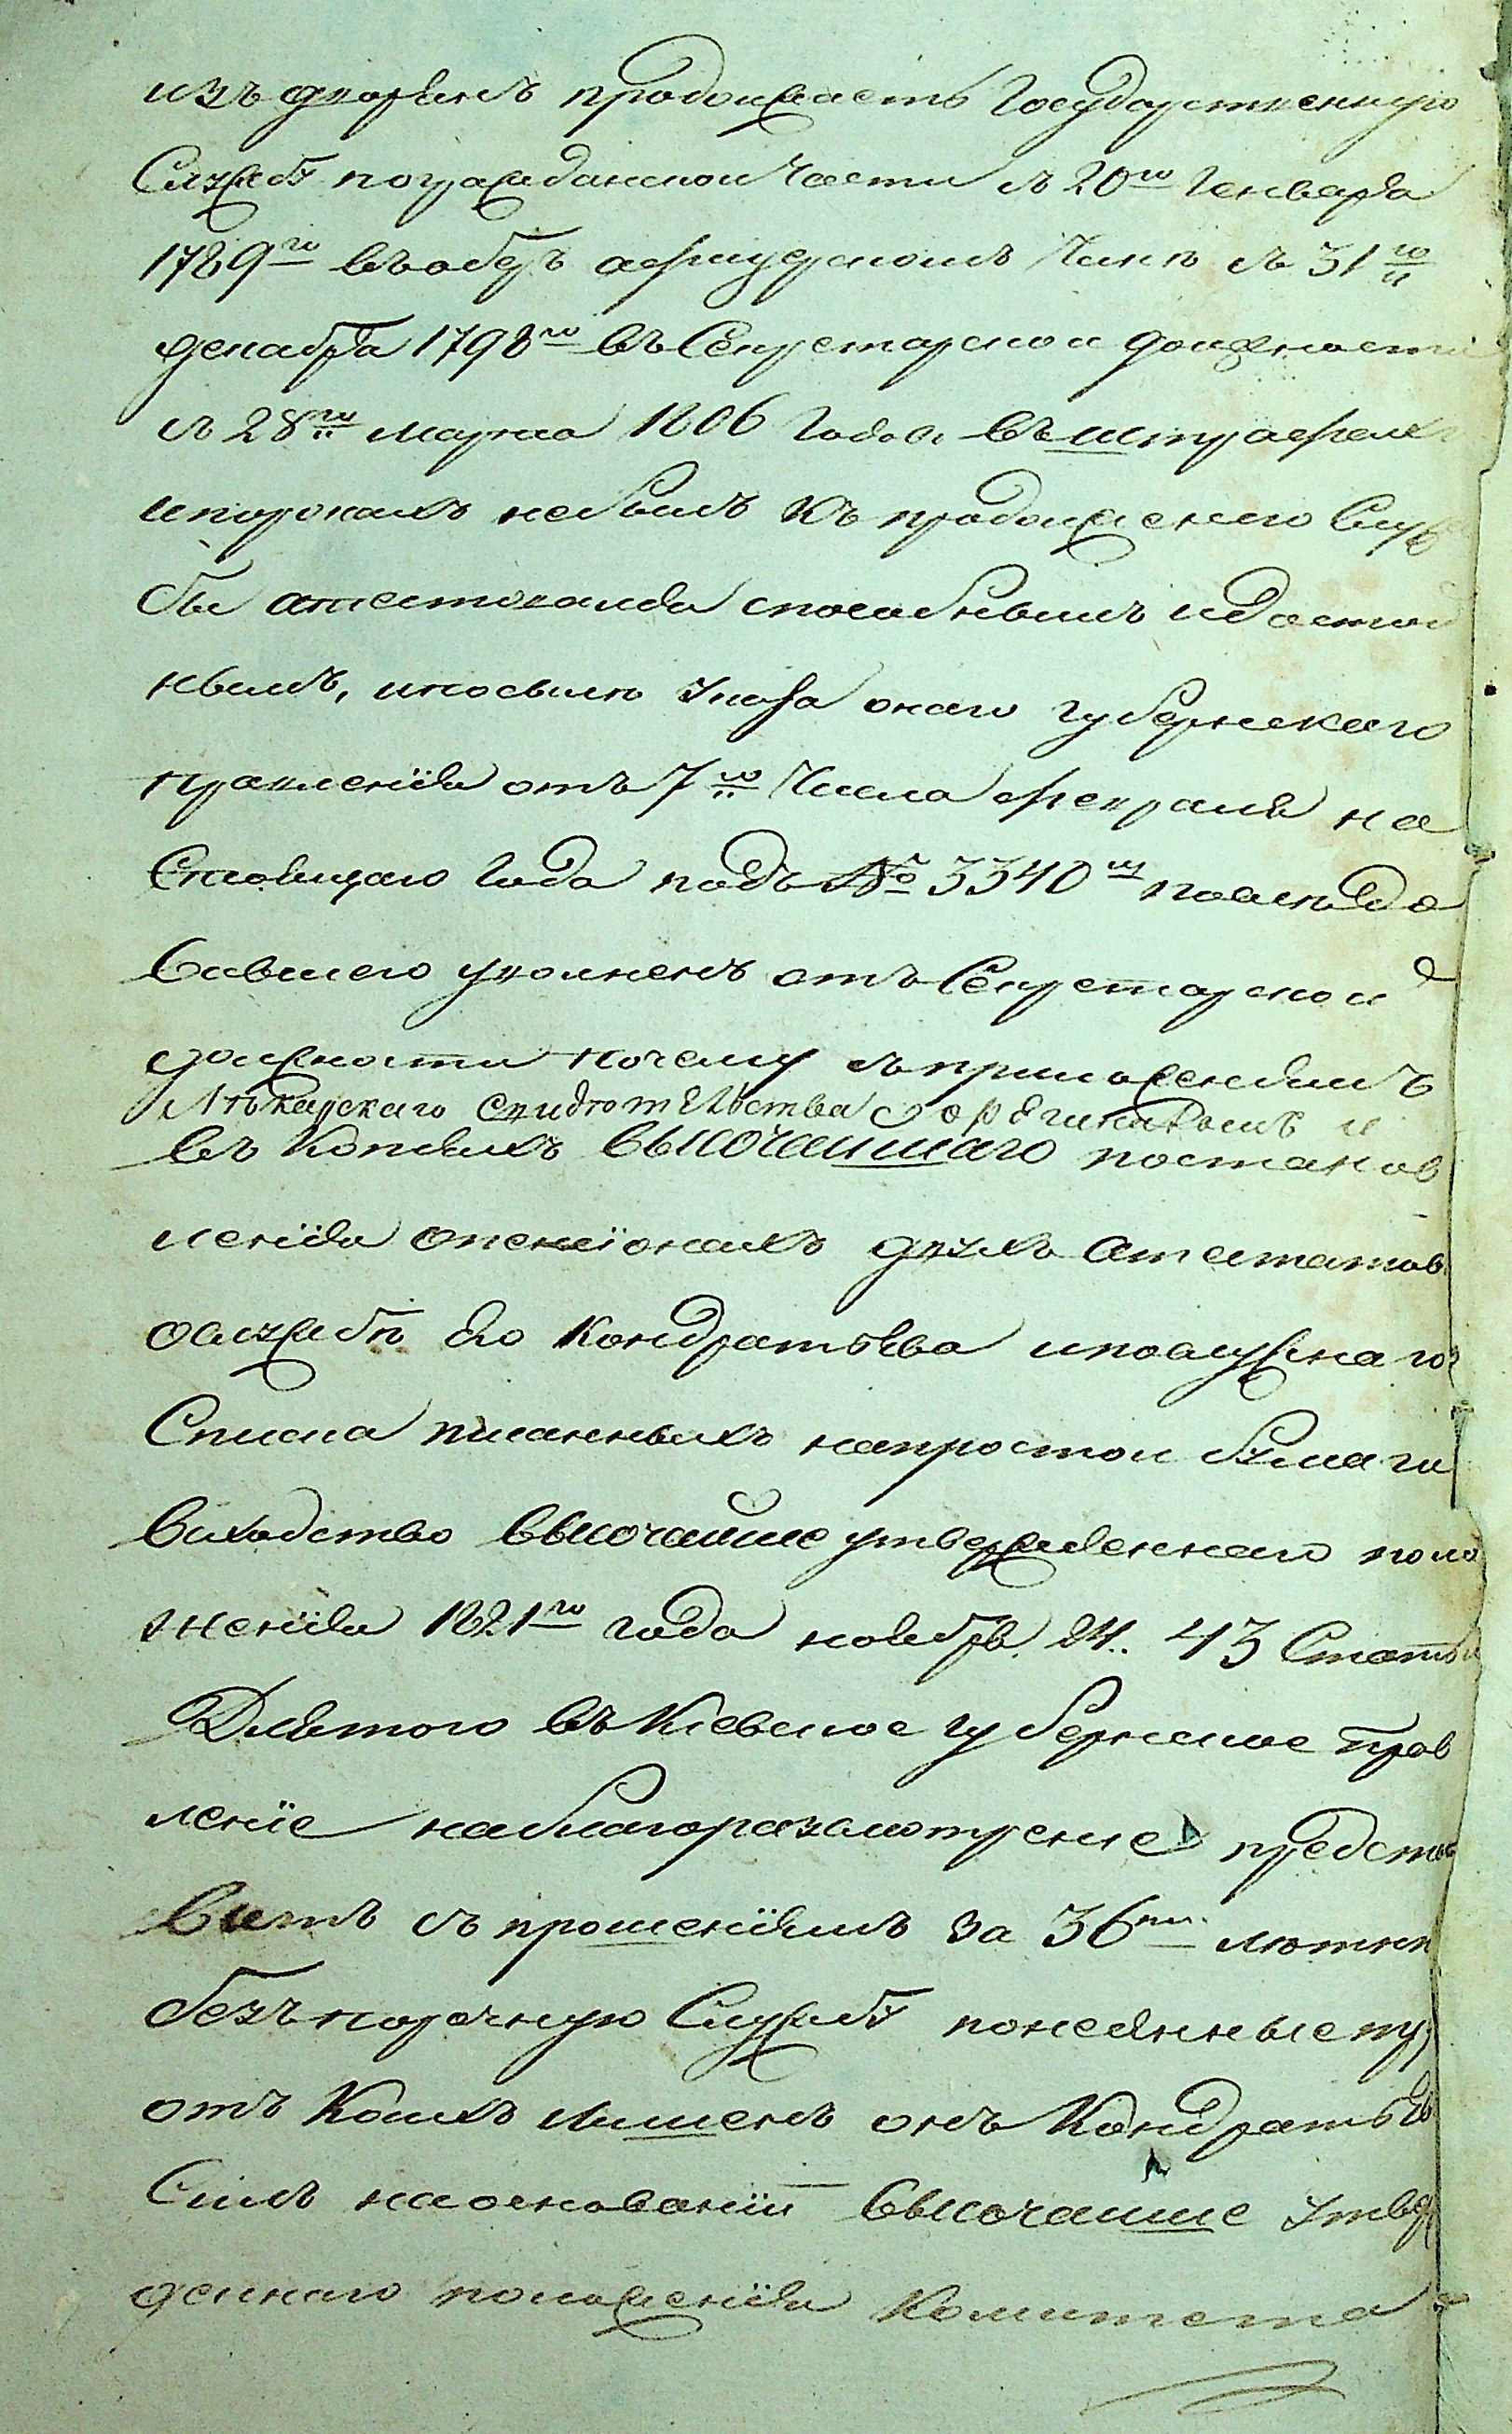 изъ дворянъ продолжаетъ Государственную
Службу погражданской части съ 20го Генваря
1789го въоберъ афицерскомъ Чинѣ съ 31го
декабря 1798го въ Секретарской должности
съ 28го марта 1806 Года въ штрафахъ
ипорокахъ небылъ Къ продолженію Служ
бы атестовался способнымъ идостой
нымъ, ипосылѣ Указа онаго губернскаго
правленія отъ 7го Числа февраля на
Стоящаго Года подъ № 3340м последо
вавшего уволненъ отъ Секретарской
должности почему съприложеніемъ
Лѣкарскаго Свидѣтельства Оорегиналомъ и
въ Копіяхъ Высочаишаго постанов
ленія опенсіонахъ двухъ атестатовъ
ослужбѣ Его Кондратьева ипослужнаго
Списка писанныхъ напростой бумаги
Висходство Высочайше утвержденнаго поло
женія 1821го года ноября 24. 43 Статьи
Длятого въ Кіевское губернское прав
леніе наблагоразсмотреніе предста
витъ съ прошеніемъ За 36ти лѣтнѣ
безъпорочную Службу понесенные тру
отъ Коихъ лишенъ онъ Кондратьевъ
Силъ наоснованіи Высочаише Утвер
деннаго положенія Комитета